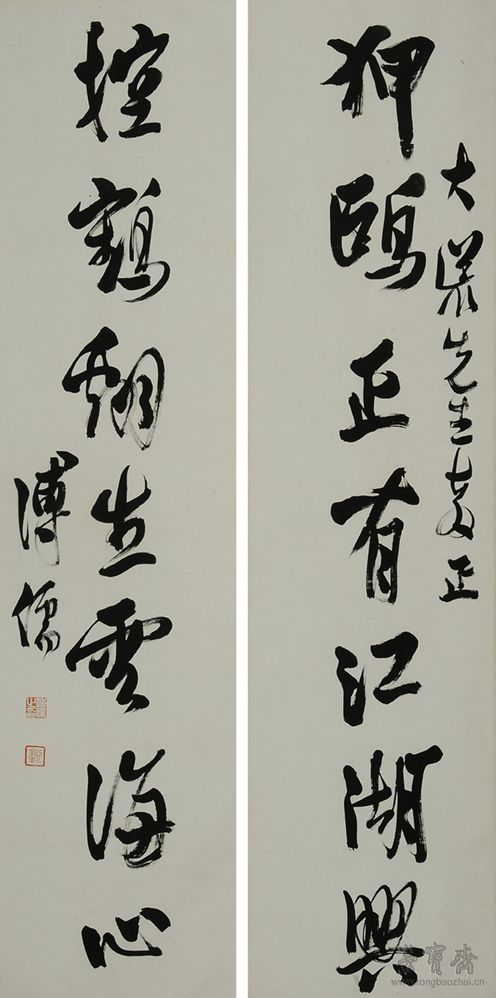 大 先生教正
狎鷗正有江湖興
控鶴翻生雲海心
溥儒
榮寶齋
www.rongbaozhai.cn